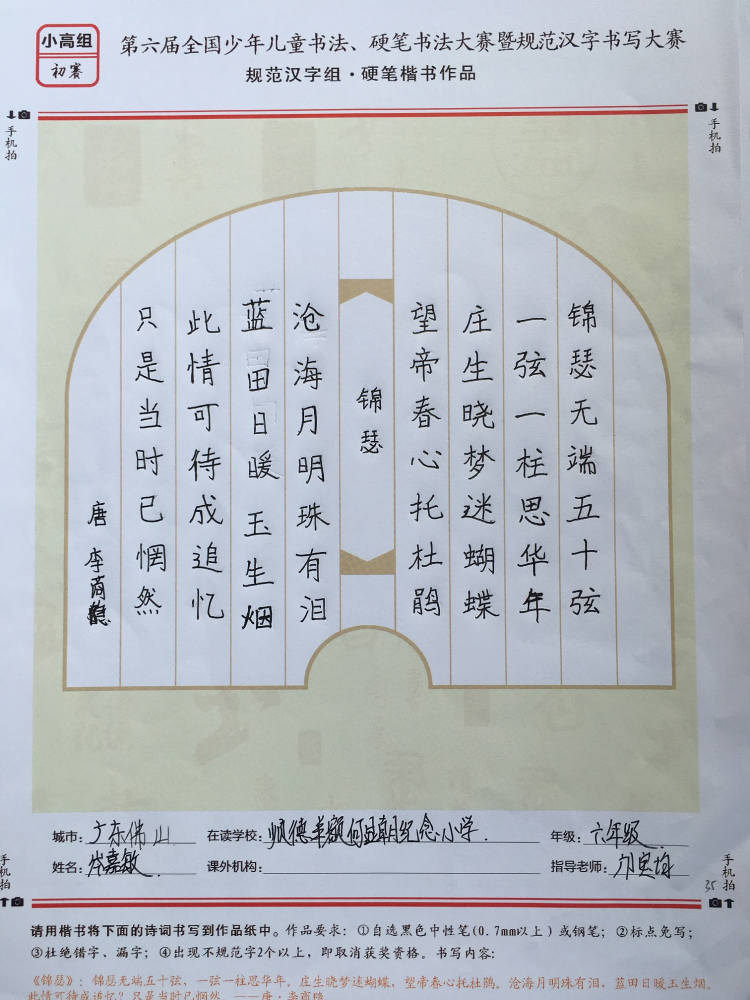 小高组
初赛
第六届全国少年儿童书法、硬笔书法大赛暨规范汉字书写大赛
规范汉字组·硬笔楷书作品
手机拍
手机拍
锦瑟无端五十弦
一弦一柱思华年
庄生晓梦迷蝴蝶
望帝春心托杜鹃
锦瑟
沧海月明珠有泪
蓝田日暖玉生烟
此情可待成追忆
只是当时已惘然
唐 李商隐
城市：广东佛山 在读学校：顺德羊额何显朝纪念小学. 年级：六年级.
姓名：岑嘉敏. 课外机构： 指导老师：
手机拍
手机拍
35
请用楷书将下面的诗词书写到作品纸中。作品要求：①自选黑色中性笔(0.7mm以上)或钢笔；②标点免写；
③杜绝错字、漏字；④出现不规范字2个以上，即取消获奖资格。书写内容：
《锦瑟》：锦瑟无端五十弦，一弦一柱思华年。庄生晓梦迷蝴蝶，望帝春心托杜鹃。沧海月明珠有泪，蓝田日暖玉生烟。
此情可待成追忆？只是当时已惘然。——唐·李商隐